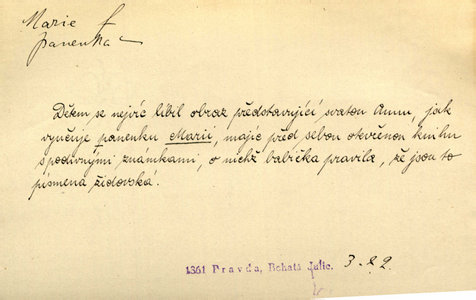 Marie
panenka
Dětem se nejvíc líbil obraz představující svatou Annu, jak
vyučuje panenku Marii, majíc před sebou otevřenou knihu
s podivnými známkami, o nichž babička pravila, že jsou to
písmena židovská.
1361 Pravda, Bohatá Julie. 3. 22.